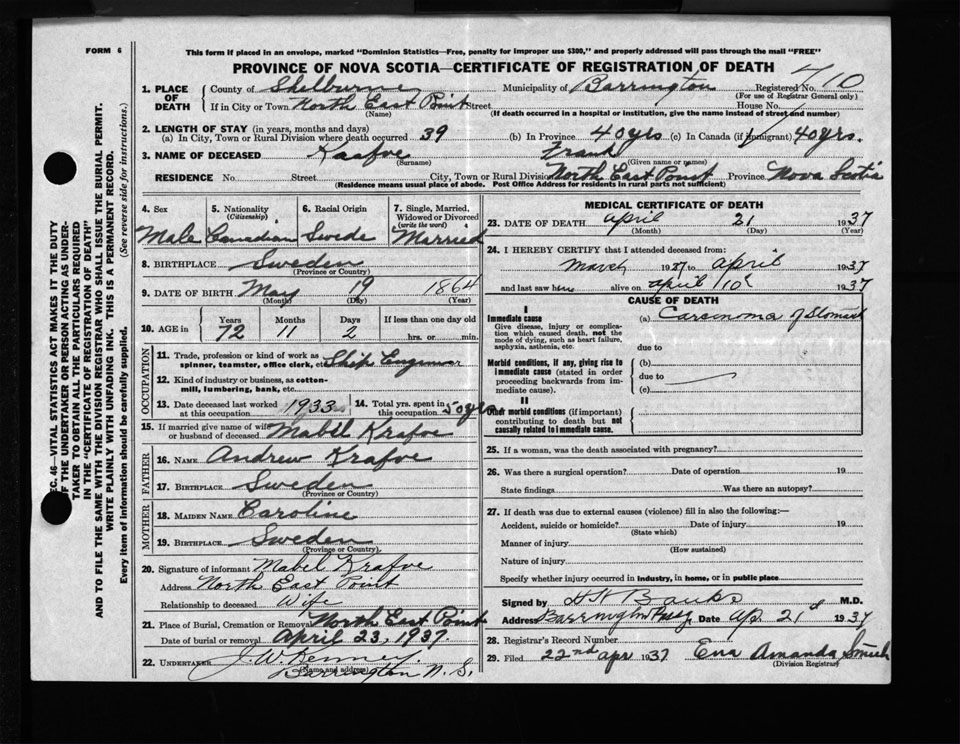 FORM 6
This form if placed in an envelope, marked "Dominion Statistics—Free, penalty for improper use $300," and properly addressed will pass through the mail "FREE"
PROVINCE OF NOVA SCOTIA—CERTIFICATE OF REGISTRATION OF DEATH
SEC. 46—VITAL STATISTICS ACT MAKES IT THE DUTY
OF THE UNDERTAKER OR PERSON ACTING AS UNDER-
TAKER TO OBTAIN ALL THE PARTICULARS REQUIRED
IN THE "CERTIFICATE OF REGISTRATION OF DEATH"
AND TO FILE THE SAME WITH THE DIVISION REGISTRAR WHO SHALL ISSUE THE BURIAL PERMIT.
WRITE PLAINLY WITH UNFADING INK. THIS IS A PERMANENT RECORD.
Every item of information should be carefully supplied. (See reverse side for instructions.)
1. PLACE OF DEATH County of Shelburne Municipality of Barrington Registered No. 710
(For use of Registrar General only)
If in City or Town North East Point Street House No.
(Name) (If death occurred in a hospital or institution, give the name instead of street and number)
2. LENGTH OF STAY (in years, months and days)
(a) In City, Town or Rural Division where death occurred 39 (b) In Province 40 yrs (c) In Canada (if immigrant) 40 yrs.
3. NAME OF DECEASED Kaafve Frank
(Surname) (Given name or names)
RESIDENCE No. Street City, Town or Rural Division North East Point Province Nova Scotia
(Residence means usual place of abode. Post Office Address for residents in rural parts not sufficient)
4. Sex 5. Nationality (Citizenship) 6. Racial Origin 7. Single, Married, Widowed or Divorced (write the word)
Male Canadian Swede Married
8. BIRTHPLACE Sweden
(Province or Country)
9. DATE OF BIRTH May 19 1864
(Month) (Day) (Year)
10. AGE in Years Months Days If less than one day old
72 11 2 hrs. or min.
OCCUPATION
11. Trade, profession or kind of work as spinner, teamster, office clerk, etc. Ship Engineer
12. Kind of industry or business, as cotton-mill, lumbering, bank, etc.
13. Date deceased last worked at this occupation 1933 14. Total yrs. spent in this occupation 50 yrs
15. If married give name of wife or husband of deceased Mabel Krafve
FATHER
16. NAME Andrew Krafve
17. BIRTHPLACE Sweden
(Province or Country)
MOTHER
18. MAIDEN NAME Caroline
19. BIRTHPLACE Sweden
(Province or Country)
20. Signature of informant Mabel Krafve
Address North East Point
Relationship to deceased Wife
21. Place of Burial, Cremation or Removal North East Point
Date of burial or removal April 23, 1937.
22. UNDERTAKER J. W. Kenney,
(Name and address)
Barrington N. S.
MEDICAL CERTIFICATE OF DEATH
23. DATE OF DEATH April 21 1937
(Month) (Day) (Year)
24. I HEREBY CERTIFY that I attended deceased from:
March 1937 to April 1937
and last saw h alive on April 10 1937
CAUSE OF DEATH
I
Immediate cause (a) Carcinoma of Stomach
Give disease, injury or complication which caused death, not the mode of dying, such as heart failure, asphyxia, asthenia, etc.
due to
Morbid conditions, if any, giving rise to immediate cause (stated in order proceeding backwards from immediate cause). (b)
due to
(c)
II
Other morbid conditions (if important) contributing to death but not causally related to immediate cause.
25. If a woman, was the death associated with pregnancy?
26. Was there a surgical operation? Date of operation 19
State findings Was there an autopsy?
27. If death was due to external causes (violence) fill in also the following:—
Accident, suicide or homicide? Date of injury 19
(State which)
Manner of injury
(How sustained)
Nature of injury
Specify whether injury occurred in industry, in home, or in public place
Signed by H K Banks M.D.
Address Barrington Psg Date Ap. 21 1937
28. Registrar's Record Number
29. Filed 22nd Apr 1937 Ena Amanda Smith
(Division Registrar)